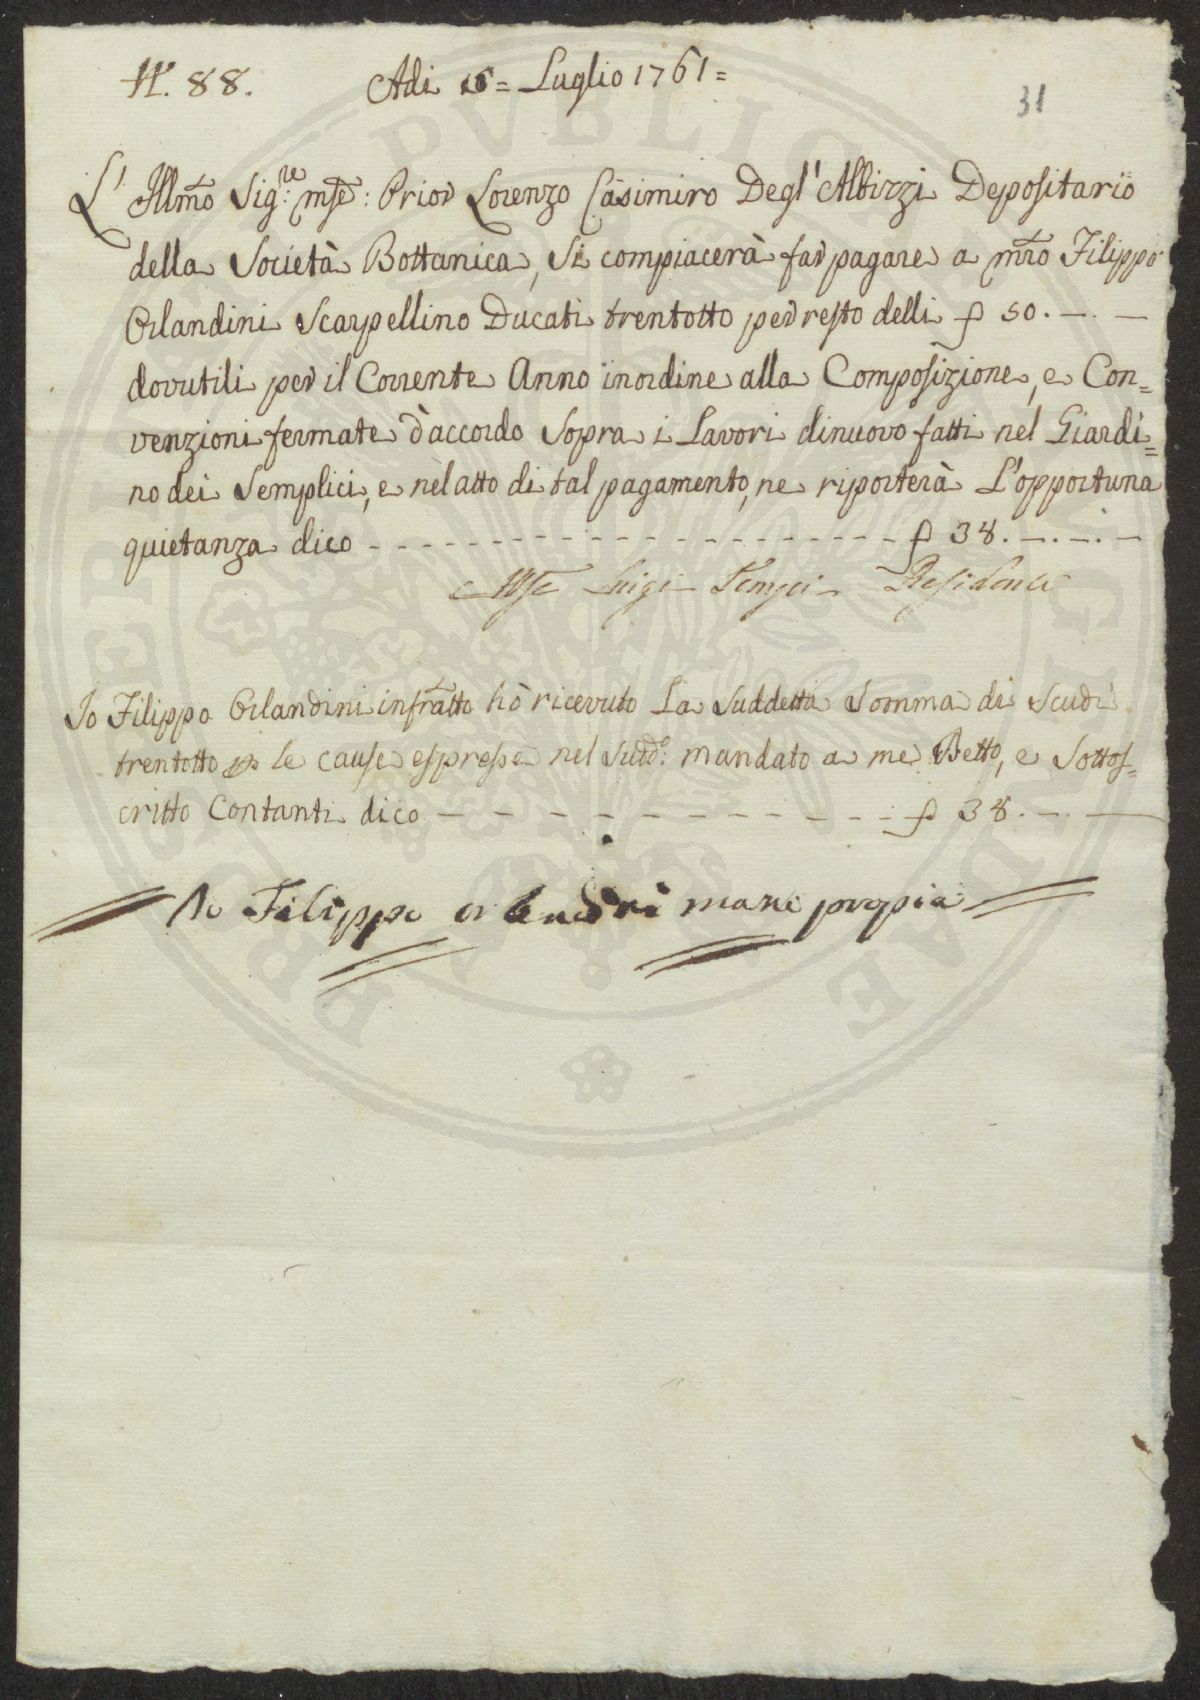 N. 88. Adi 16= Luglio 1761=
31
L' Illmo Sigre: mse: Prior Lorenzo Casimiro Degl' Albizzi Depositario
della Società Bottanica, Si compiacerà far pagare a mro Filippo
Orlandini Scarpellino Ducati trentotto per resto delli 50. — . —
dovutili per il Corrente Anno inordine alla Composizione, e Con=
venzioni fermate d'accordo Sopra i Lavori dinuovo fatti nel Giardi=
no dei Semplici, e nel atto di tal pagamento, ne riporterà L'opportuna
quietanza dico - - - - - - - - - - - - - - - - - - 38. — . — . —
Mse Luigi Tempi Presidente
Io Filippo Orlandini infratto hò ricevuto La Suddetta Somma di Scudi
trentotto p le cause espresse nel Sudd:o mandato a me Detto, e Sottos=
critto Contanti dico — — — — — — — — — — 38. — . —
Io Filippo orlandini mano propia